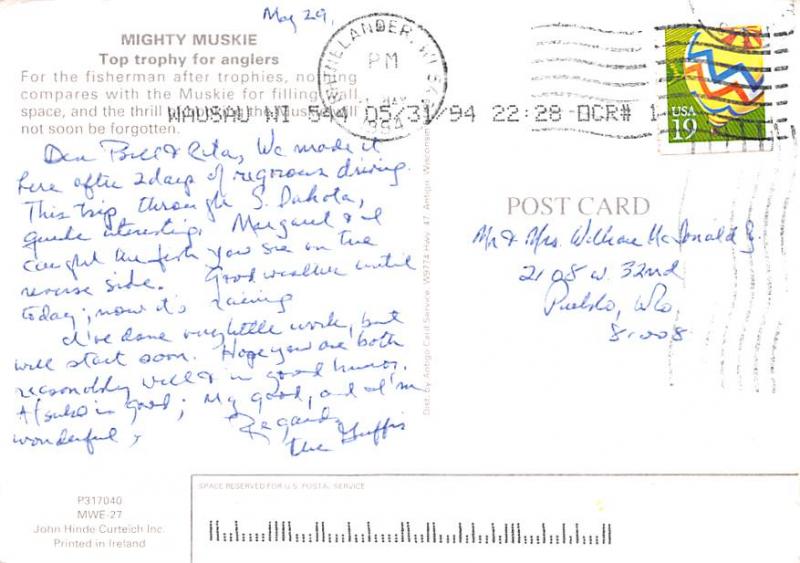 May 29,
MIGHTY MUSKIE
Top trophy for anglers
For the fisherman after trophies, nothing
compares with the Muskie for filling wall
space, and the thrill of the Muskie will
not soon be forgotten.
RHINELANDER, WI 54
PM
MAY
1994
WAUSAU WI 544 05/31/94 22:28 OCR# 1
USA
19
Dear Bill & Rita, We made it
here after 2 days of rigorous driving.
This trip through S. Dakota,
quite interesting. Margaret & I
caught the fish you see on the
reverse side. Good weather until
today; now it's raining
I've done very little work, but
will start soon. Hope you are both
reasonably well & in good humor.
in good; My good, and I'm
wonderful,
Regards
The
Dist. by Antigo Card Service W9774 Hwy. 47, Antigo, Wisconsin
POST CARD
Mr & Mrs. William McDonald
2108 W. 32nd
Pueblo, Colo
81008
SPACE RESERVED FOR U.S. POSTAL SERVICE
P317040
MWE-27
John Hinde Curteich Inc.
Printed in Ireland